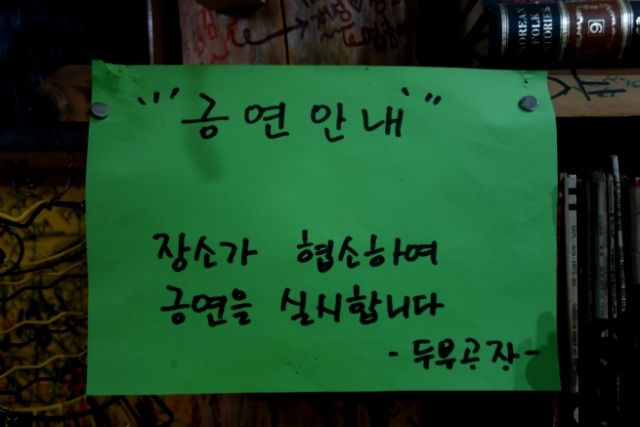 KOREAN
FOLK
STORIES
6
''' 금연안내 '''
장소가 협소하여
금연을 실시합니다
- 두우공장 -